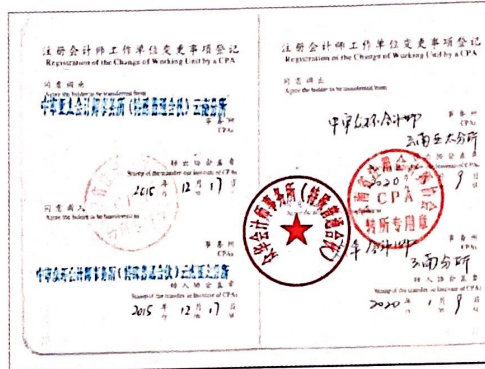 注册会计师工作单位变更事项登记
Registration of the Change of Working Unit by a CPA
同意调出
Agree the holder to be transferred from
中审亚太会计师事务所(特殊普通合伙)云南分所
事务所
CPAs
转出协会盖章
Stamp of the transfer-out Institute of CPAs
2015年12月17日
同意调入
Agree the holder to be transferred to
事务所
CPAs
中审众环会计师事务所(特殊普通合伙)云南亚太分所
转入协会盖章
Stamp of the transfer-in Institute of CPAs
2015年12月17日
注册会计师工作单位变更事项登记
Registration of the Change of Working Unit by a CPA
同意调出
Agree the holder to be transferred from
中审众环会计师
事务所
CPAs
云南亚太分所
转出协会盖章
Stamp of the transfer-out Institute of CPAs
2020
9日
云南省注册会计师协会
CPA
转所专用章
众华会计师事务所(特殊普通合伙)
华会计师
事务所
CPAs
云南分所
转入协会盖章
Stamp of the transfer-in Institute of CPAs
2020年1月9日